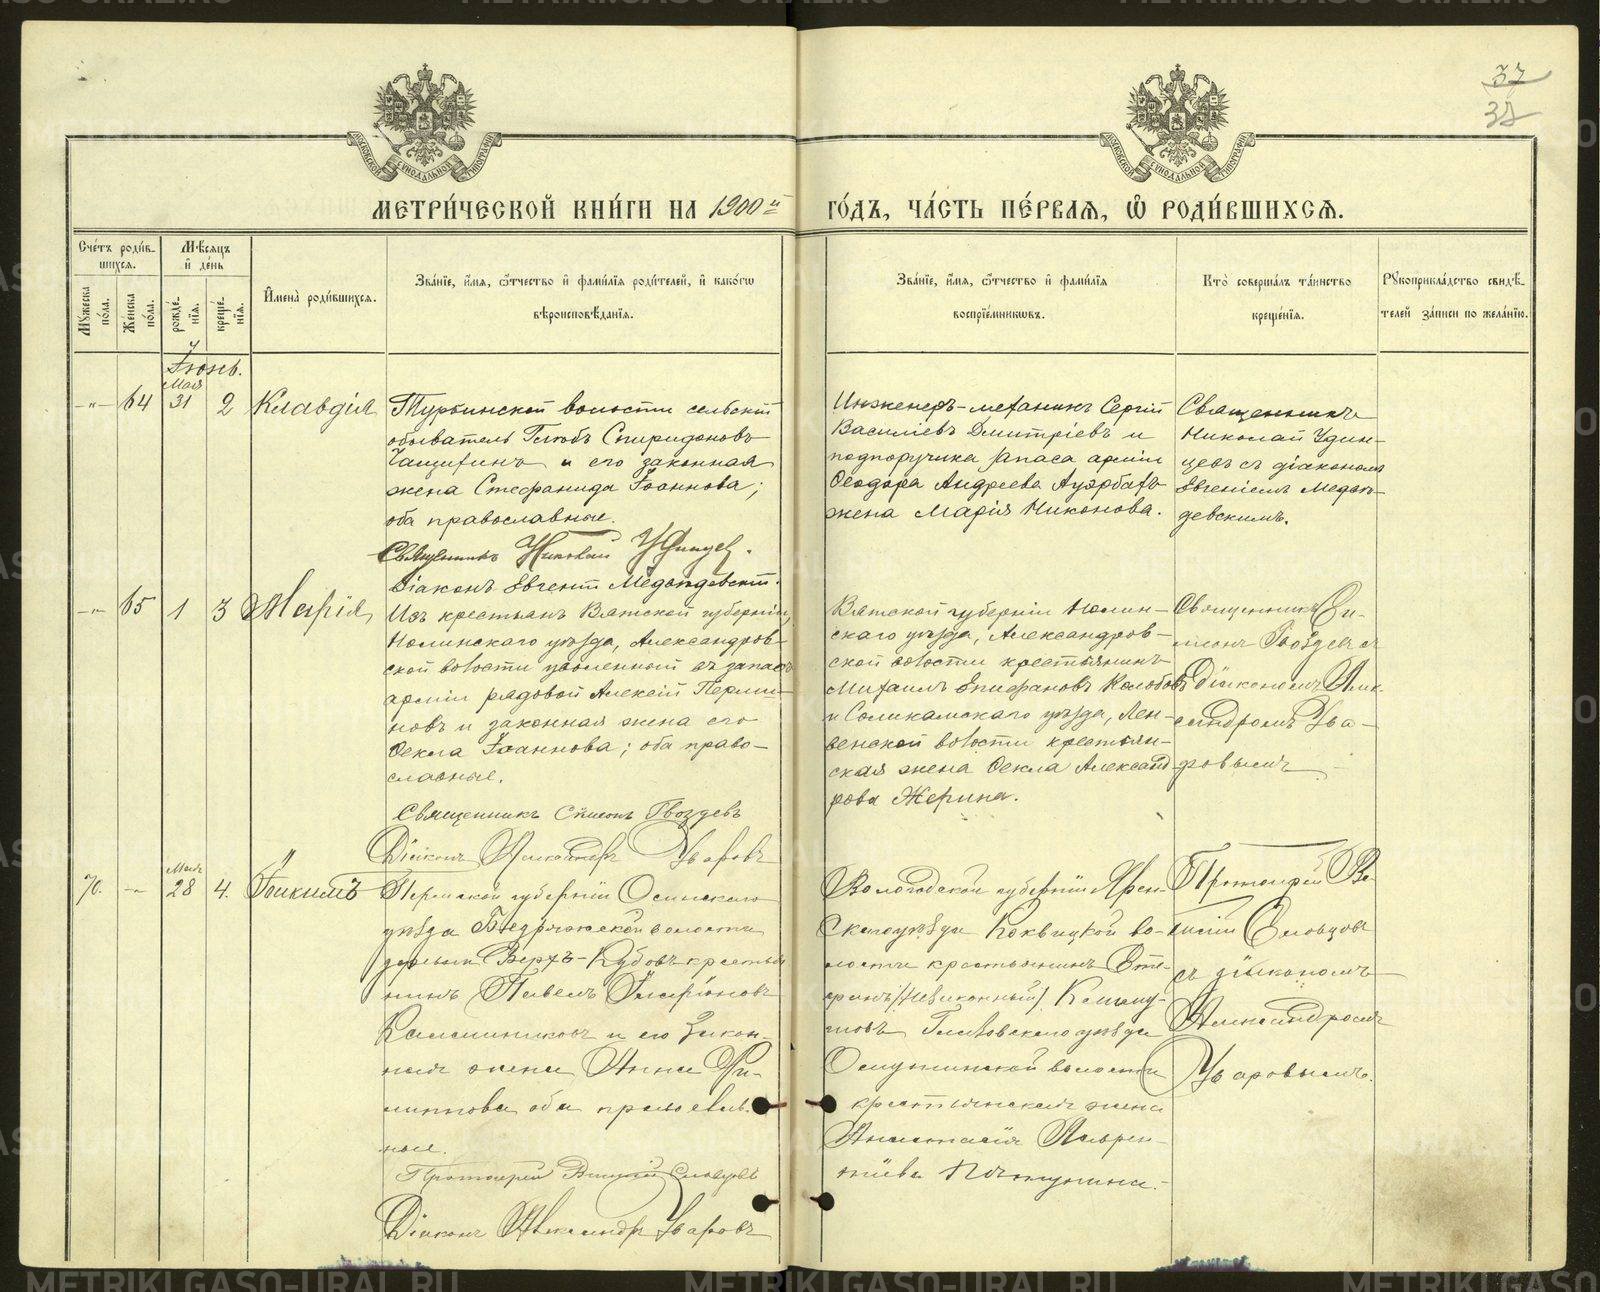 37
38
МОСКОВСКОЙ СУНОДАЛЬНОЙ ТИПОГРАФІИ
МОСКОВСКОЙ СУНОДАЛЬНОЙ ТИПОГРАФІИ
МЕТРИ́ЧЕСКОЙ КНИ́ГИ НА 1900й
ГО́ДЪ, ЧА́СТЬ ПЕ́РВАЯ, Ѽ РОДИ́ВШИХСЯ.
Сче́тъ роди́в-
шихся.
Мѣ́сяцъ
и҆ де́нь
Мꙋ́жеска по́ла.
Же́нска по́ла.
рожде́-
нїѧ.
креще́-
нїѧ.
И҆мена̀ роди́вшихся.
Зва́нїе, и҆́мѧ, ѻ҆́тчество и҆ фами́лїѧ роди́телей, и҆ како́гѡ
вѣроисповѣ́данїѧ.
Зва́нїе, и҆́мѧ, ѻ҆́тчество и҆ фами́лїѧ
воспрїе́мникѡвъ.
Кто̀ соверша́лъ та́инство
креще́нїѧ.
Рꙋкоприкла́дство свидѣ́-
телей за́писи по жела́нїю.
Іюнь.
-"- 64 Мая 31 2 Клавдія
Турьинской волости сельскій
обыватель Глѣбъ Спиридоновъ
Чащихинъ и его законная
жена Стефанида Іоаннова;
оба православные.
Священникъ Николай Удинцев.
Діаконъ Евгеній Медвѣдевскій.
Инженеръ-механикъ Сергій
Василіевъ Дмитріевъ и
подпоручика запаса арміи
Ѳеодора Андреева Ауэрбахъ
жена Марія Никонова.
Священникъ
Николай Удин-
цевъ съ діакономъ
Евгеніемъ Медвѣ-
девскимъ.
-"- 65 1 3 Марія
Изъ крестьянъ Вятской губерніи,
Нолинскаго уѣзда, Александров-
ской волости уволенный въ запасъ
арміи рядовой Алексій Перми-
новъ и законная жена его
Ѳекла Іоаннова; оба право-
славные.
Священникъ Симеонъ Гвоздевъ
Діаконъ Александръ Уваровъ
Вятской губерніи Нолин-
скаго уѣзда, Александров-
ской волости крестьянинъ
Михаилъ Епифановъ Колобовъ
и Соликамскаго уѣзда, Лен-
венской волости крестьян-
ская жена Ѳекла Александ-
рова Жерина.
Священникъ Си-
меонъ Гвоздевъ съ
діакономъ Алек-
сандромъ Ува-
ровымъ
70. -"- Мая 28 4. Іоакимъ
Пермской губерніи Осинскаго
уѣзда Бедряжской волости
деревни Верхъ-Кубовъ крестья
нинъ Павелъ Иларіоновъ
Калашниковъ и его закон-
ная жена Анна Фи-
липпова оба православ-
ные.
Протоіерей Василій Словцовъ
Діаконъ Александръ Уваровъ
Вологодской губерніи Ярен-
скаго уѣзда Коквицкой во-
лости крестьянинъ Сте-
фанъ (Незаконный)
Глазовскаго уѣзда
Омутнинской волости
крестьянская жена
Анастасія Лаврен-
тіева
Протоіерей Ва-
силій Словцовъ
съ діакономъ
Александромъ
Уваровымъ.
METRIKI.GASO-URAL.RU